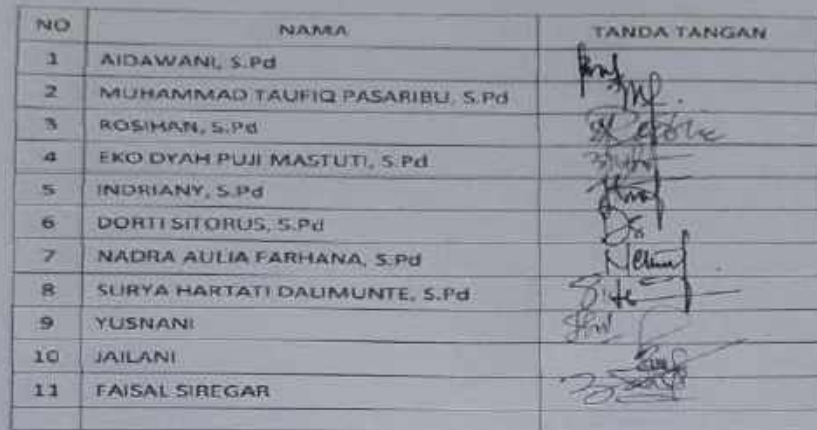 NO NAMA TANDA TANGAN
1 AIDAWANI, S.Pd
2 MUHAMMAD TAUFIQ PASARIBU, S.Pd
3 ROSIHAN, S.Pd
4 EKO DYAH PUJI MASTUTI, S.Pd
5 INDRIANY, S.Pd
6 DORTI SITORUS, S.Pd
7 NADRA AULIA FARHANA, S.Pd
8 SURYA HARTATI DALIMUNTE, S.Pd
9 YUSNANI
10 JAILANI
11 FAISAL SIREGAR